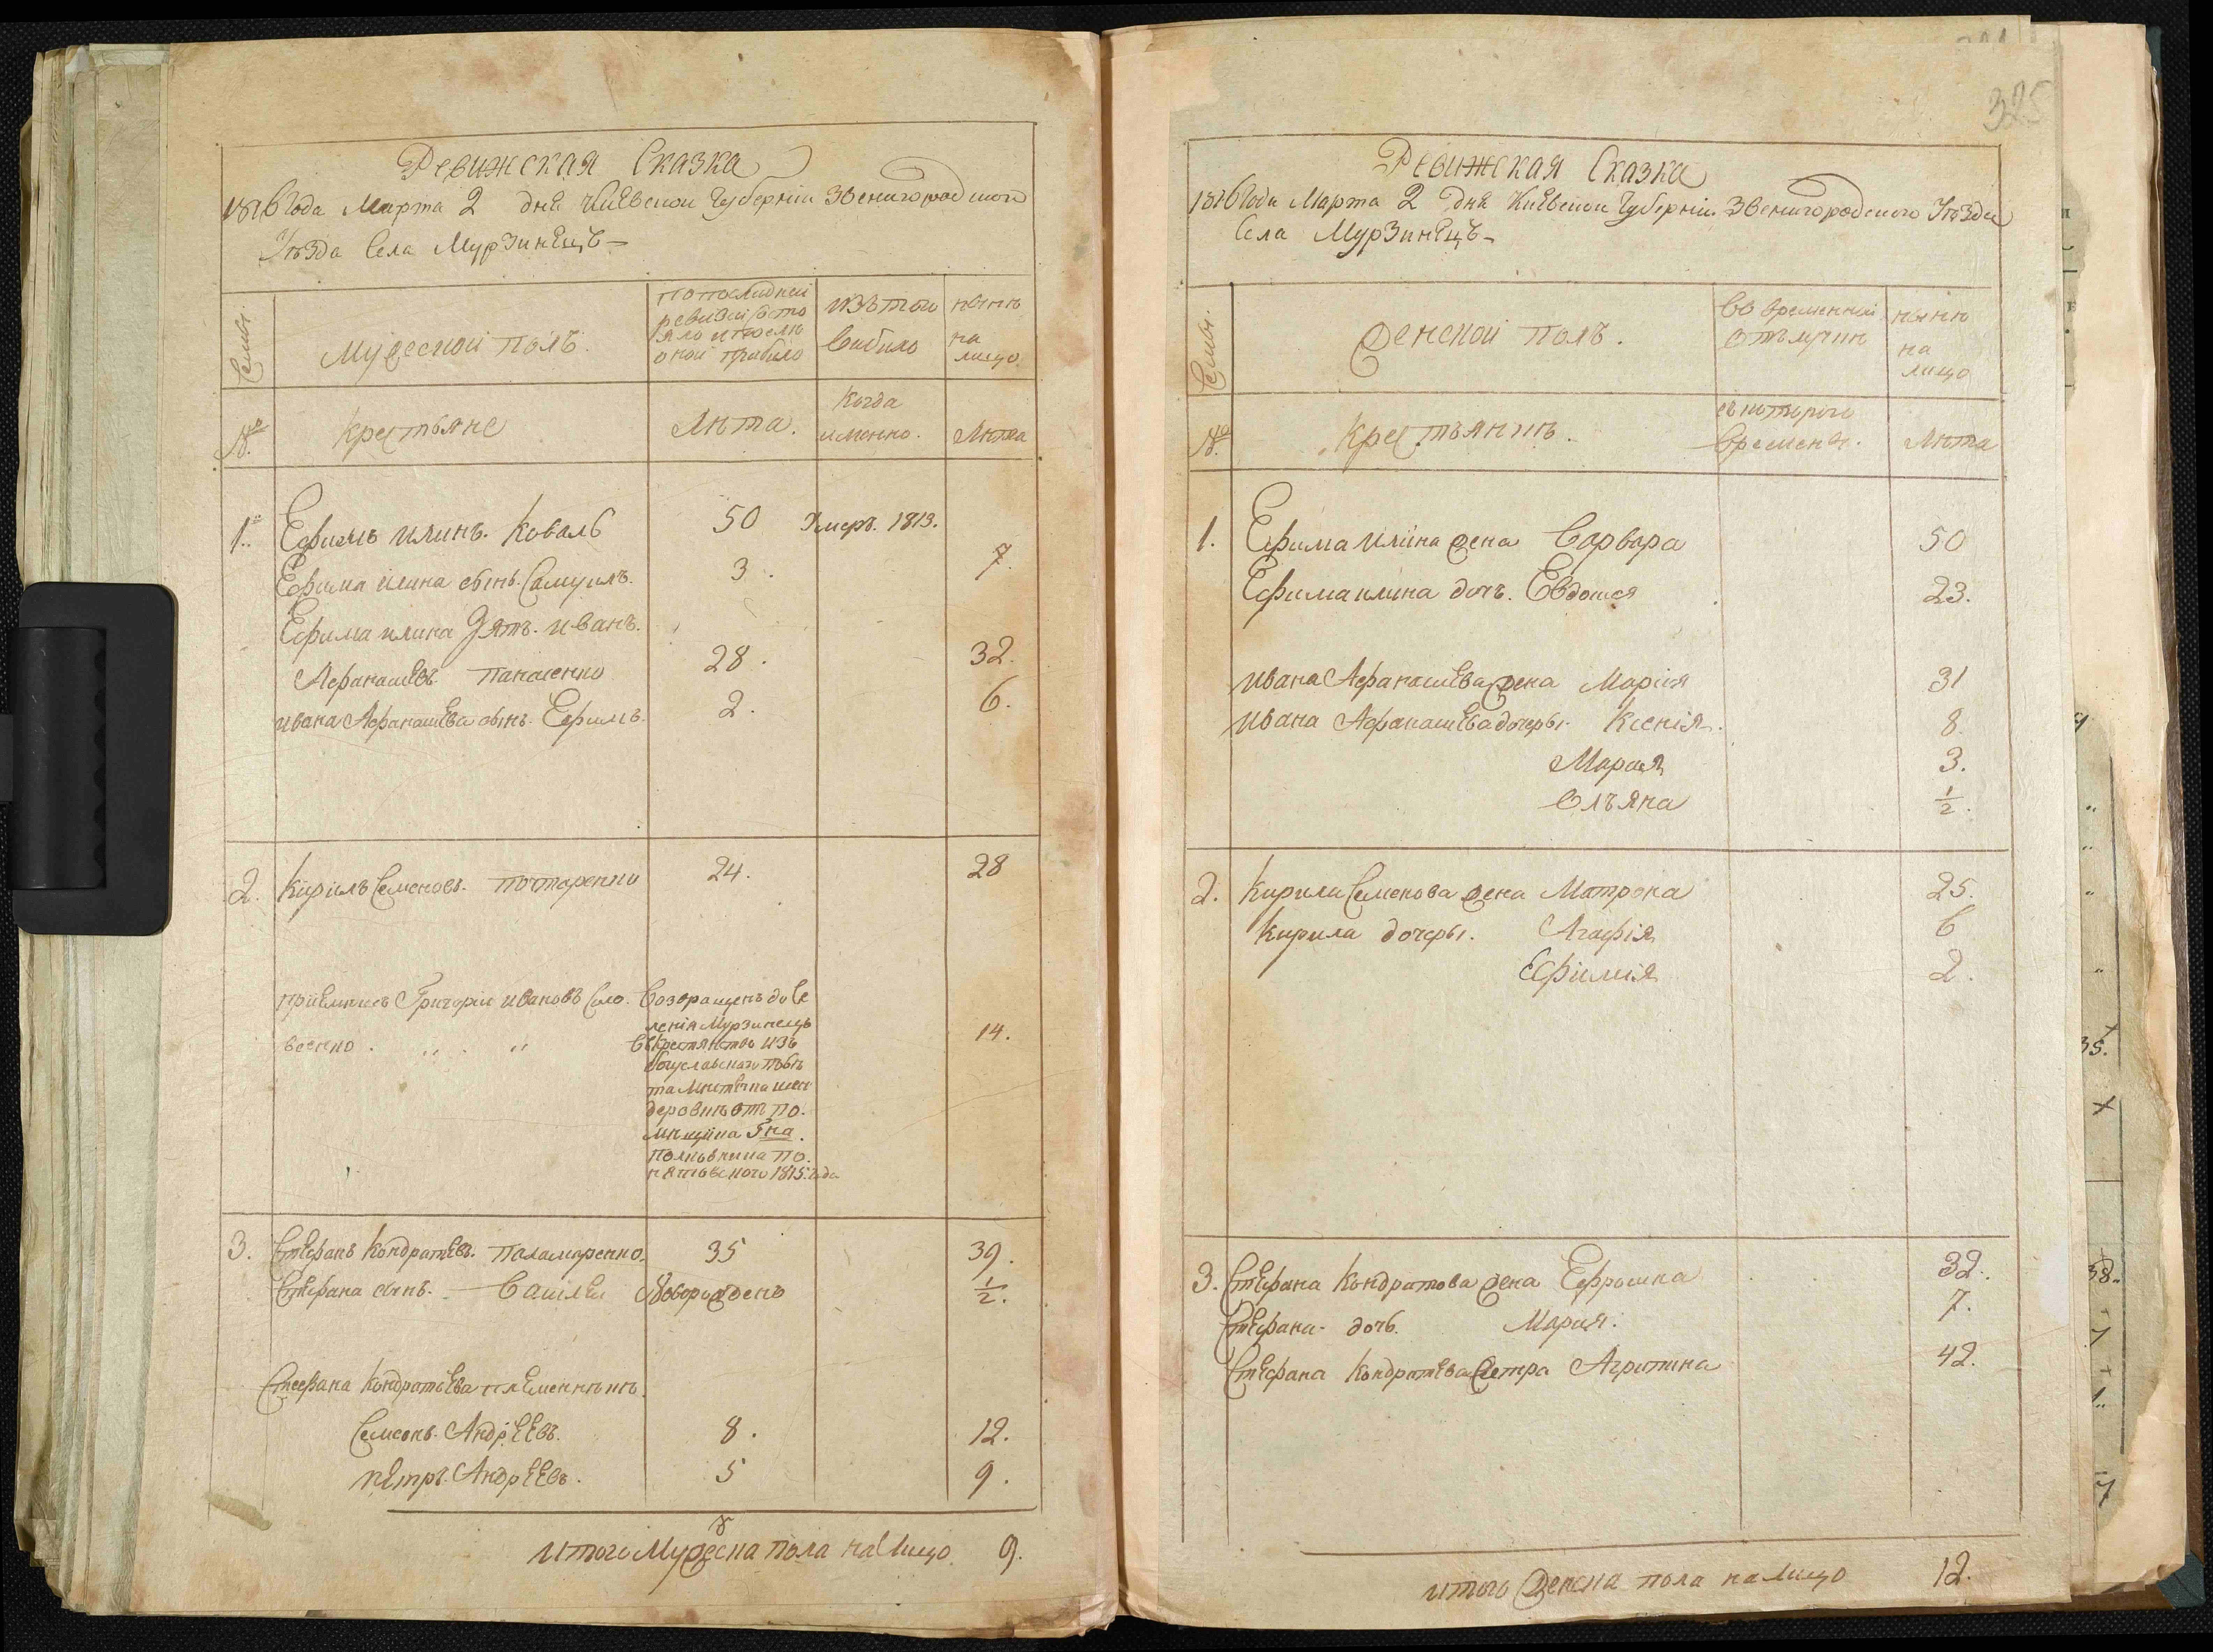 Ревижская Сказка
1816 Года Марта 2 дня Киевской Губернїи Звенигородского
Уѣзда Села Мурзинецъ
Семьи.
Мужеской полъ.
по последней
ревизїи состо
яло и после
оной прибыло
изъ того
выбыло
нынѣ
на
лицо
№
Крестьяне
Лѣта.
Когда
именно.
Лѣта
1. Ефимъ Илинъ. Коваль 50 Умеръ. 1813.
Ефима Илина сынъ. Самуилъ. 3. 7.
Ефима Илина зять. Иванъ.
Афанасьевъ. Панасенко 28. 32.
Ивана Афанасьева сынъ. Ефимъ. 2. 6.
2. Кирилъ Семеновъ. Почтаренко 24. 28
Приемышъ Григорїи Ивановъ Соло.
веенко. 14.
Возвращенъ до Се
ленїя Мурзинецъ
въ крестянство изъ
Богуславского повѣ
та
от по.
мещика Гна
полковника По.
нятовского 1815 года
3. Стефанъ Кондратьевъ. Паламаренко. 35 39.
Стефана сынъ. Василеи Новорожденъ ½.
Стефана Кондратьева племенники.
Семенъ. Андреевъ. 8. 12.
Петръ. Андреевъ. 5 9.
Итого Мужеска пола на лицо 9.
325
Ревижская Сказка
1816 Года Марта 2 Дня Киевской Губернїи. Звенигородского Уѣзда
Села Мурзинецъ
Семьи.
Женской полъ.
Во временной
отлучки
нынѣ
на
лицо
№
Крестьянинъ.
съ которого
времени.
Лѣта
1. Ефима Илїина жена Варвара 50
Ефима илина дочъ. Евдокия 23.
Ивана Афанасьева жена Марїия 31
Ивана Афанасьева дочеры. Ксенїя. 8.
Мария 3.
Олъяна ½.
2. Кирили Семенова жена Матрона 25.
Кирила дочеры. Агафїя 6
Ефїимїя 2.
3. Стефана Кондратова жена Ефрошна 32.
Стефана дочь. Мария. 7.
Стефана Кондратьева Сестра Агрипина 42.
Итого Женска пола на лицо 12.